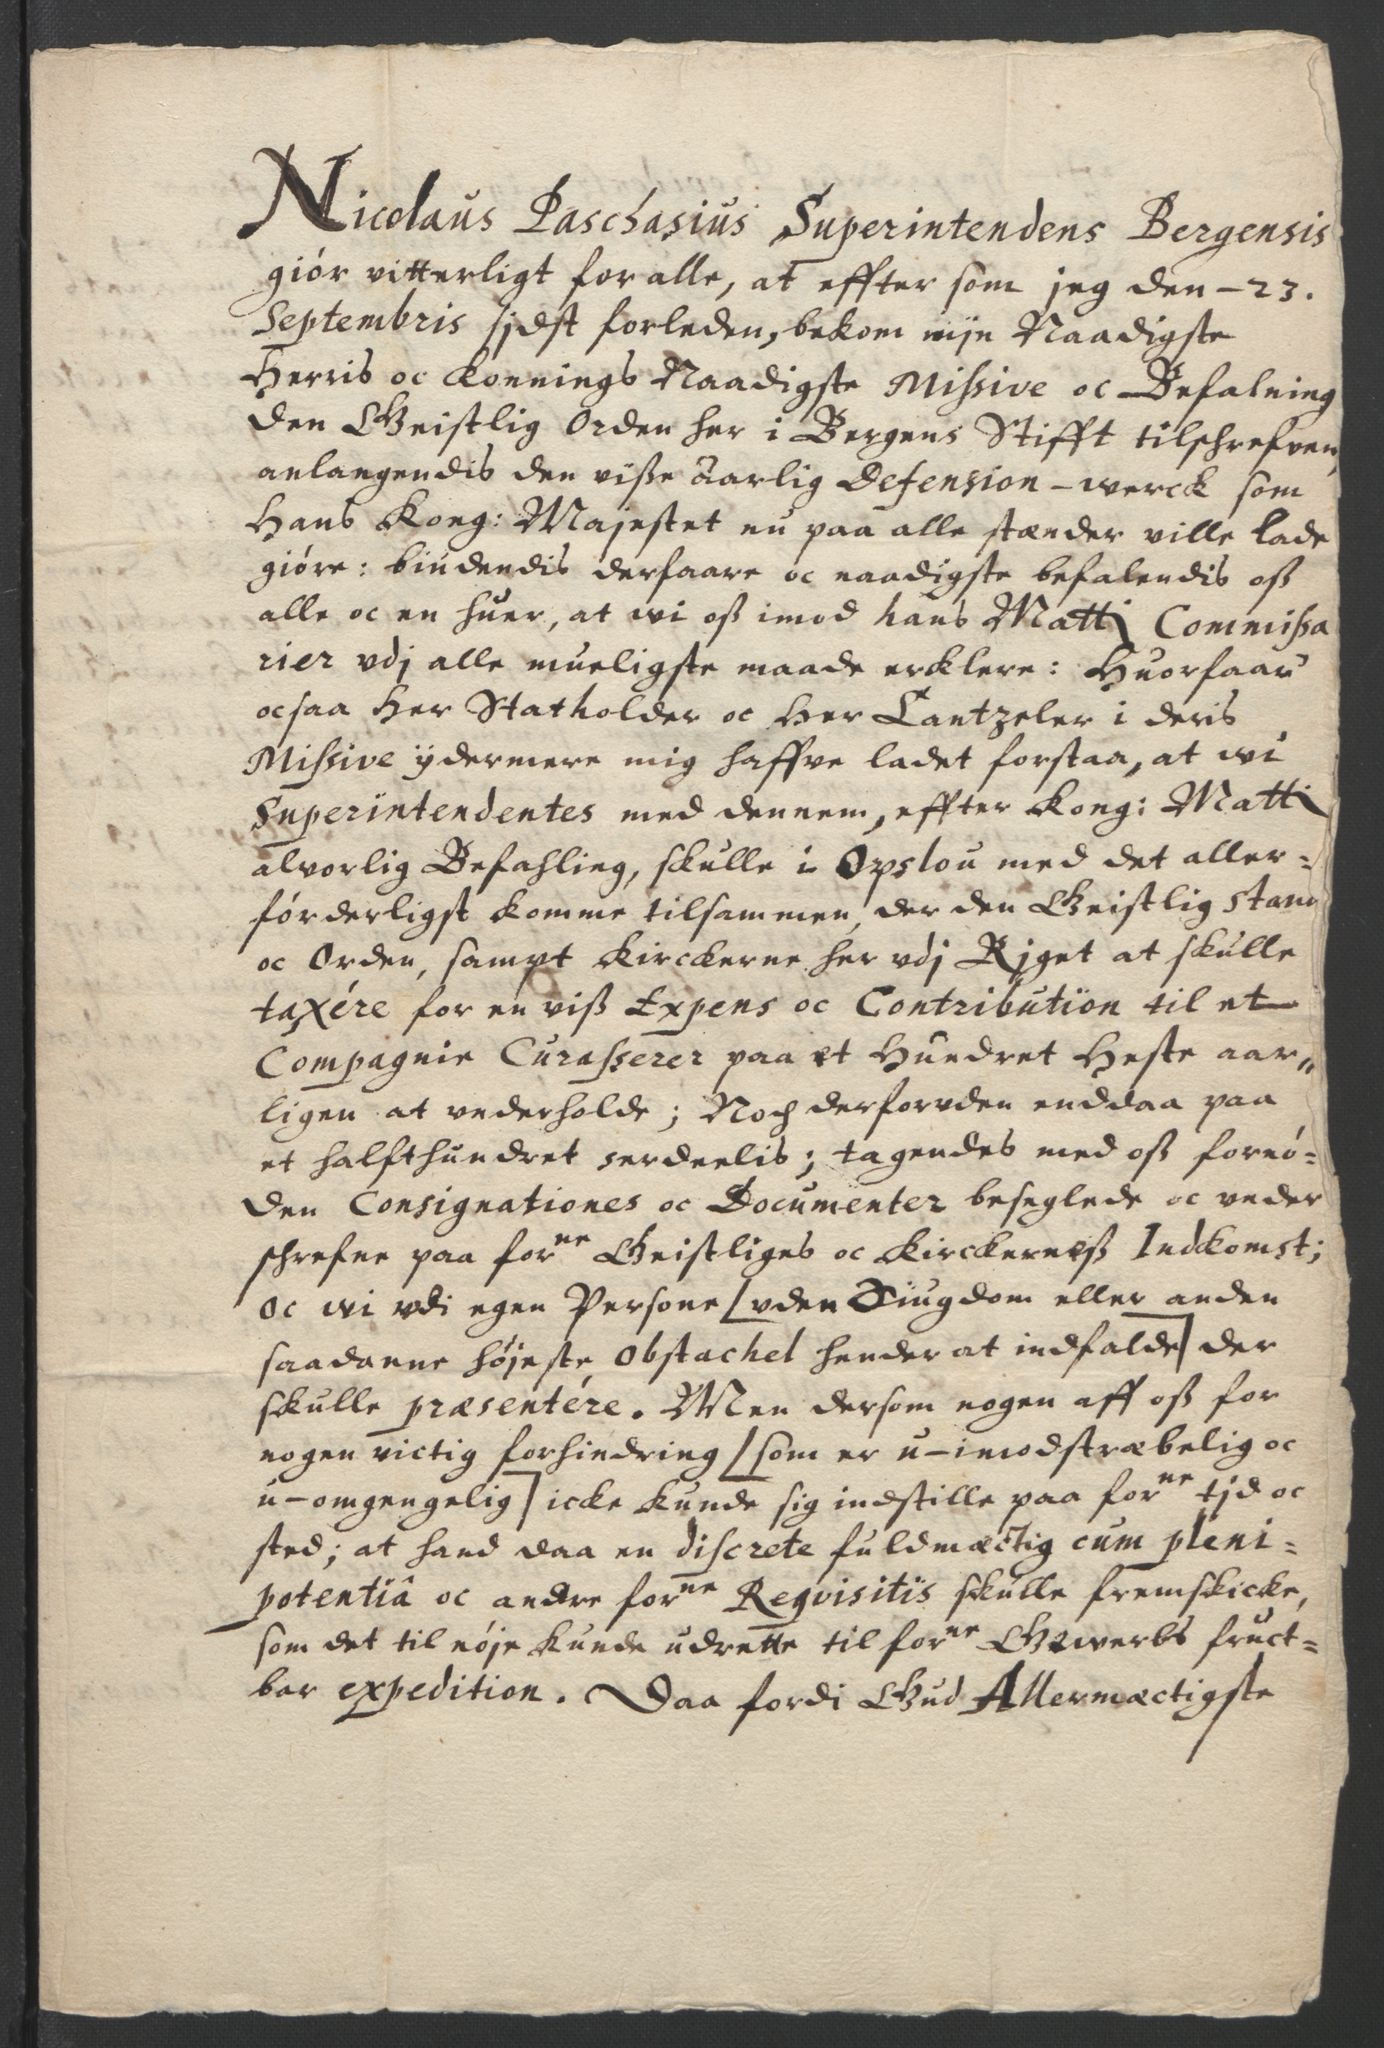 Nicolaus Paschasius Superintendens Bergensis
giör vitterligt for alle, at effter som jeg den - 23.
Septembris sidst forleden, bekom mijn Naadigste
Herris oc Konnings Naadigste Missive oc Befalning
den Geistlig Orden her i Bergens Stifft tilschrefven,
anlangendis den visse aarlig Defension-werck som
Hans Kong: Majestet nu paa alle stænder ville lade
giöre: biudendis derfaare oc naadigste befalendis oss
alle oc en huer, at wi oss imod hans Matti Commissa
rier vdj alle mueligste maade erklere: Huorfaar
ocsaa Her Statholder oc Her Cantzeler i deris
Missive ÿdermere mig haffve ladet forstaa, at wi
Superintendentes med dennem, effter Kong: Matti
alvorlig Befahling, skulle i Opslou med det aller=
förderligst komme tilsammen, der den Geistlig Stand
oc Orden, sampt Kirckerne her vdj Rjget at skulle
taxére for en viss Expens oc Contribution til et
Compagnie Curasserer paa et Hundret Heste aar„
ligen at vnderholde; Noch derforvden enddaa paa
et halfthundret serdeelis; tagendes med oss fornö=
den Consignationes oc Documenter beseglede oc vnder
schrefne paa forne Geistliges oc Kirckerness Indkomst;
oc wi vdi egen Persone [vden Siugdom eller anden
saadanne höjeste Obstachel hender at indfalde] der
skulle præsentére. Men dersom nogen aff oss for
nogen victig forhindring [som er u-imodstræbelig oc
u-omgengelig] icke kunde sig indstille paa forne tjd oc
sted; at hand daa en discrete fuldmæctig cum pleni=
potentiâ oc andre forne Reqvisitis skulle fremskicke,
som det til nöje kunde udrette til forne Gewerbs fruct=
bar expedition. Daa fordi Gud Allermæctigste